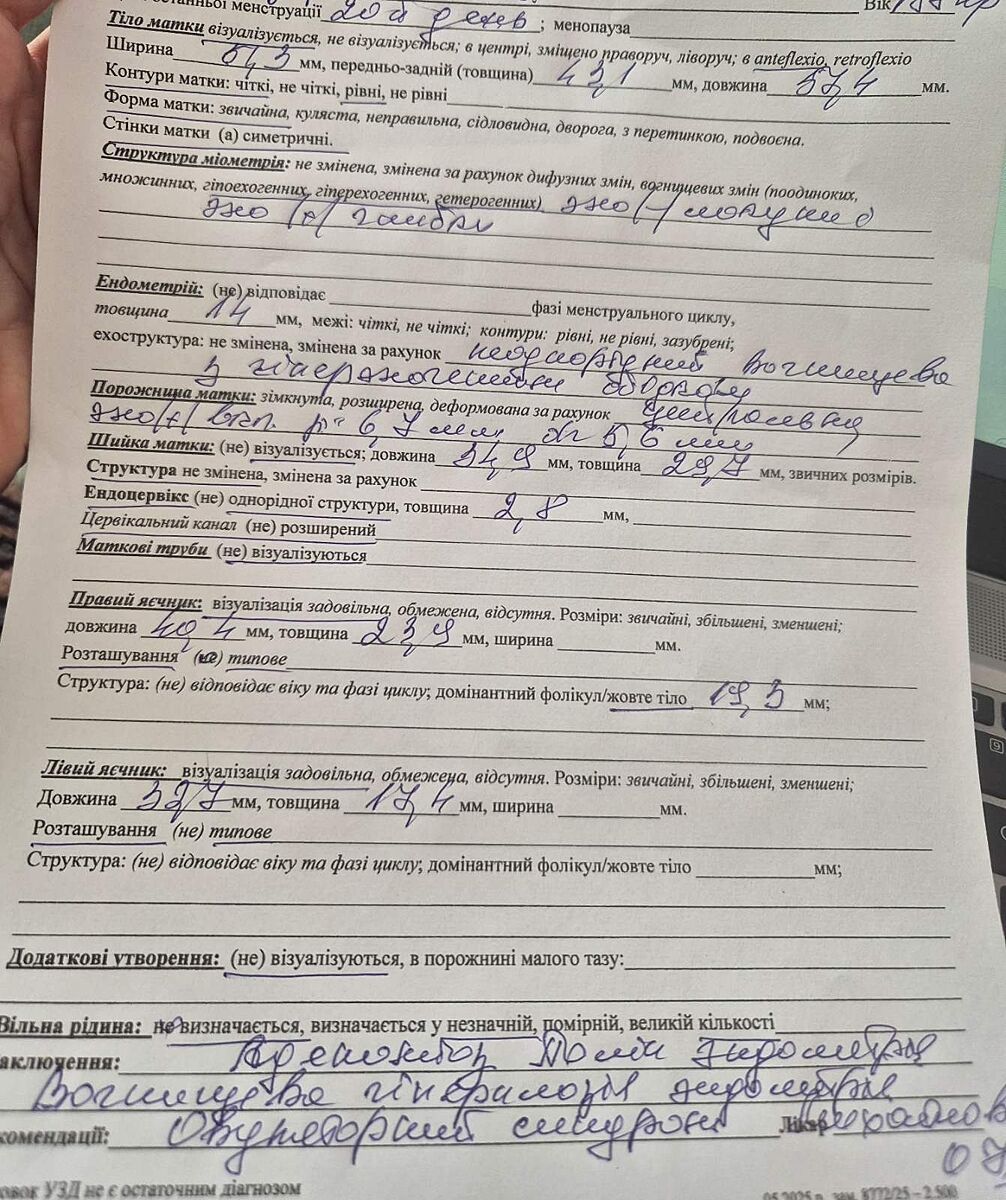 останньої менструації 20й день ; менопауза
Вік
Тіло матки візуалізується, не візуалізується; в центрі, зміщено праворуч, ліворуч; в anteflexio, retroflexio
Ширина 51,3 мм, передньо-задній (товщина) 43,1 мм, довжина 57,4 мм.
Контури матки: чіткі, не чіткі, рівні, не рівні
Форма матки: звичайна, куляста, неправильна, сідловидна, дворога, з перетинкою, подвоєна.
Стінки матки (а) симетричні.
Структура міометрія: не змінена, змінена за рахунок дифузних змін, вогнищевих змін (поодиноких,
множинних, гіпоехогенних, гіперехогенних, гетерогенних) эхо (-)
эхо (+)
Ендометрій: (не) відповідає фазі менструального циклу,
товщина 14 мм, межі: чіткі, не чіткі; контури: рівні, не рівні, зазубрені;
ехоструктура: не змінена, змінена за рахунок неоднорідний вогнищево
з
Порожнина матки: зімкнута, розширена, деформована за рахунок
эхо (+) вкл. 6,7 мм 5,6 мм
Шийка матки: (не) візуалізується; довжина 34,9 мм, товщина 29,7 мм, звичних розмірів.
Структура не змінена, змінена за рахунок
Ендоцервікс (не) однорідної структури, товщина 2,8 мм,
Цервікальний канал (не) розширений
Маткові труби (не) візуалізуються
Правий яєчник: візуалізація задовільна, обмежена, відсутня. Розміри: звичайні, збільшені, зменшені;
довжина 40,4 мм, товщина 23,9 мм, ширина мм.
Розташування (не) типове
Структура: (не) відповідає віку та фазі циклу; домінантний фолікул/жовте тіло 19,3 мм;
Лівий яєчник: візуалізація задовільна, обмежена, відсутня. Розміри: звичайні, збільшені, зменшені;
Довжина 32,7 мм, товщина 17,4 мм, ширина мм.
Розташування (не) типове
Структура: (не) відповідає віку та фазі циклу; домінантний фолікул/жовте тіло мм;
Додаткові утворення: (не) візуалізуються, в порожнині малого тазу:
Вільна рідина: не визначається, визначається у незначній, помірній, великій кількості
аключення: Аденоміоз Поліп эндометрія
Вогнищева гіперплазія эндометрія
комендації: Овуляторний синдром Лікар
овок УЗД не є остаточним діагнозом
05.2025 р. зам. 8772/25 – 2 500